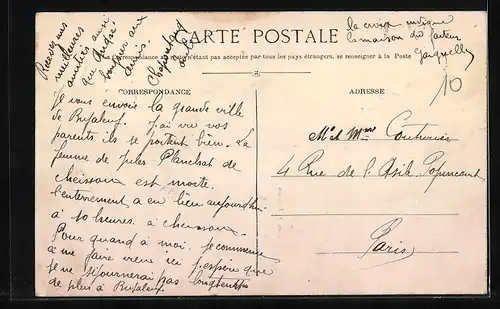 CARTE POSTALE
La Correspondance au recto n'est pas acceptée par tous les pays étrangers, se renseigner à la Poste
CORRESPONDANCE
ADRESSE
Recevez mes
meilleures
amitiés ainsi
que André
bonjour aux
amis
la croix indique
la maison du facteur
10
Je vous envoie la grande ville
de Bujaleuf. J'ai vu vos
parents ils se portent bien. La
femme de Jules Planchat de
cheissoux est morte.
l'enterrement a eu lieu aujourd'hui
à 10 heures. à cheissoux.
Pour quand à moi. Je commence
à me faire vieux ici j'espère que
je ne séjournerai pas longtemps
de plus à Bujaleuf.
Mr et Mme Couturier
4 Rue de l'Asile Popincourt
Paris